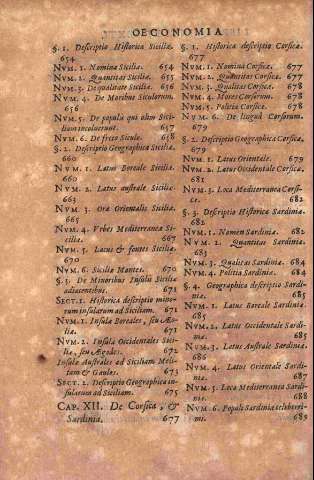 OECONOMIA
§. 1. Descriptio Historica Siciliæ.
654
NVM. 1. Nomina Siciliæ. 654
NVM. 2. Quantitas Siciliæ. 655
NVM. 3. De qualitate Siciliæ. 656
NVM. 4. De Moribus Siculorum.
656
NVM. 5. De populis qui olim Sici-
liam incoluerunt. 657
NVM. 6. De freto Siculo. 658
§. 2. Descriptio Geographica Siciliæ.
660
NVM. 1. Latus Boreale Siciliæ.
660
NVM. 2. Latus australe Siciliæ.
663
NVM. 3. Ora Orientalis Siciliæ.
665
NVM. 4. Vrbes Mediterraneæ Si-
ciliæ. 667
NVM. 5. Lacus & fontes Siciliæ.
670
NVM. 6. Siciliæ Montes. 670
§. 3. De Minoribus Insulis Siciliæ
adiacentibus. 671
SECT. 1. Historica descriptio mino-
rum insularum ad Siciliam. 671
NVM. 1. Insulæ Boreales, seu Æo-
liæ. 671
NVM. 2. Insulæ Occidentales Sici-
liæ, seu Ægades. 672
Insulæ Australes ad Siciliam Meli-
tam & Gaulos. 673
SECT. 2. Descriptio Geographica in-
sularum ad Siciliam. 675
CAP. XII. De Corsica, &
Sardinia. 677
§. 1. Historica descriptio Corsicæ.
677
NVM. 1. Nomina Corsicæ. 677
NVM. 2. Quantitas Corsicæ. 677
NVM. 3. Qualitas Corsicæ. 678
NVM. 4. Mores Corsorum. 678
NVM. 5. Politia Corsicæ. 678
NVM. 6. De linguâ Corsorum.
679
§. 2. Descriptio Geographica Corsicæ.
679
NVM. 1. Latus Orientale. 679
NVM. 2. Latus Occidentale Corsicæ.
681
NVM. 3. Loca Mediterranea Corsi-
cæ. 682
§. 3. Descriptio Historica Sardiniæ.
682
NVM. 1. Nomen Sardiniæ. 682
NVM. 2. Quantitas Sardiniæ.
683
NVM. 3. Qualitas Sardiniæ. 684
NVM. 4. Politia Sardiniæ. 684
§. 4. Geographica descriptio Sardi-
niæ. 685
NVM. 1. Latus Boreale Sardiniæ.
685
NVM. 2. Latus Occidentale Sardi-
niæ. 685
NVM. 3. Latus Australe Sardiniæ.
686
NVM. 4. Latus Orientale Sardi-
niæ. 687
NVM. 5. Loca Mediterranea Sardi-
niæ. 688
NVM. 6. Populi Sardiniæ celeberri-
mi. 689